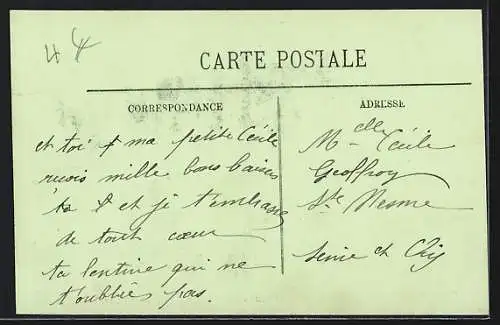 44
CARTE POSTALE
CORRESPONDANCE
ADRESSE
et toi ma petite Cécile
reçois mille bons baisers
et je t'embrasse
de tout cœur
ta qui ne
t'oublies pas.
Melle Cécile
Geoffroy
Ste Mesme
Seine et Oise